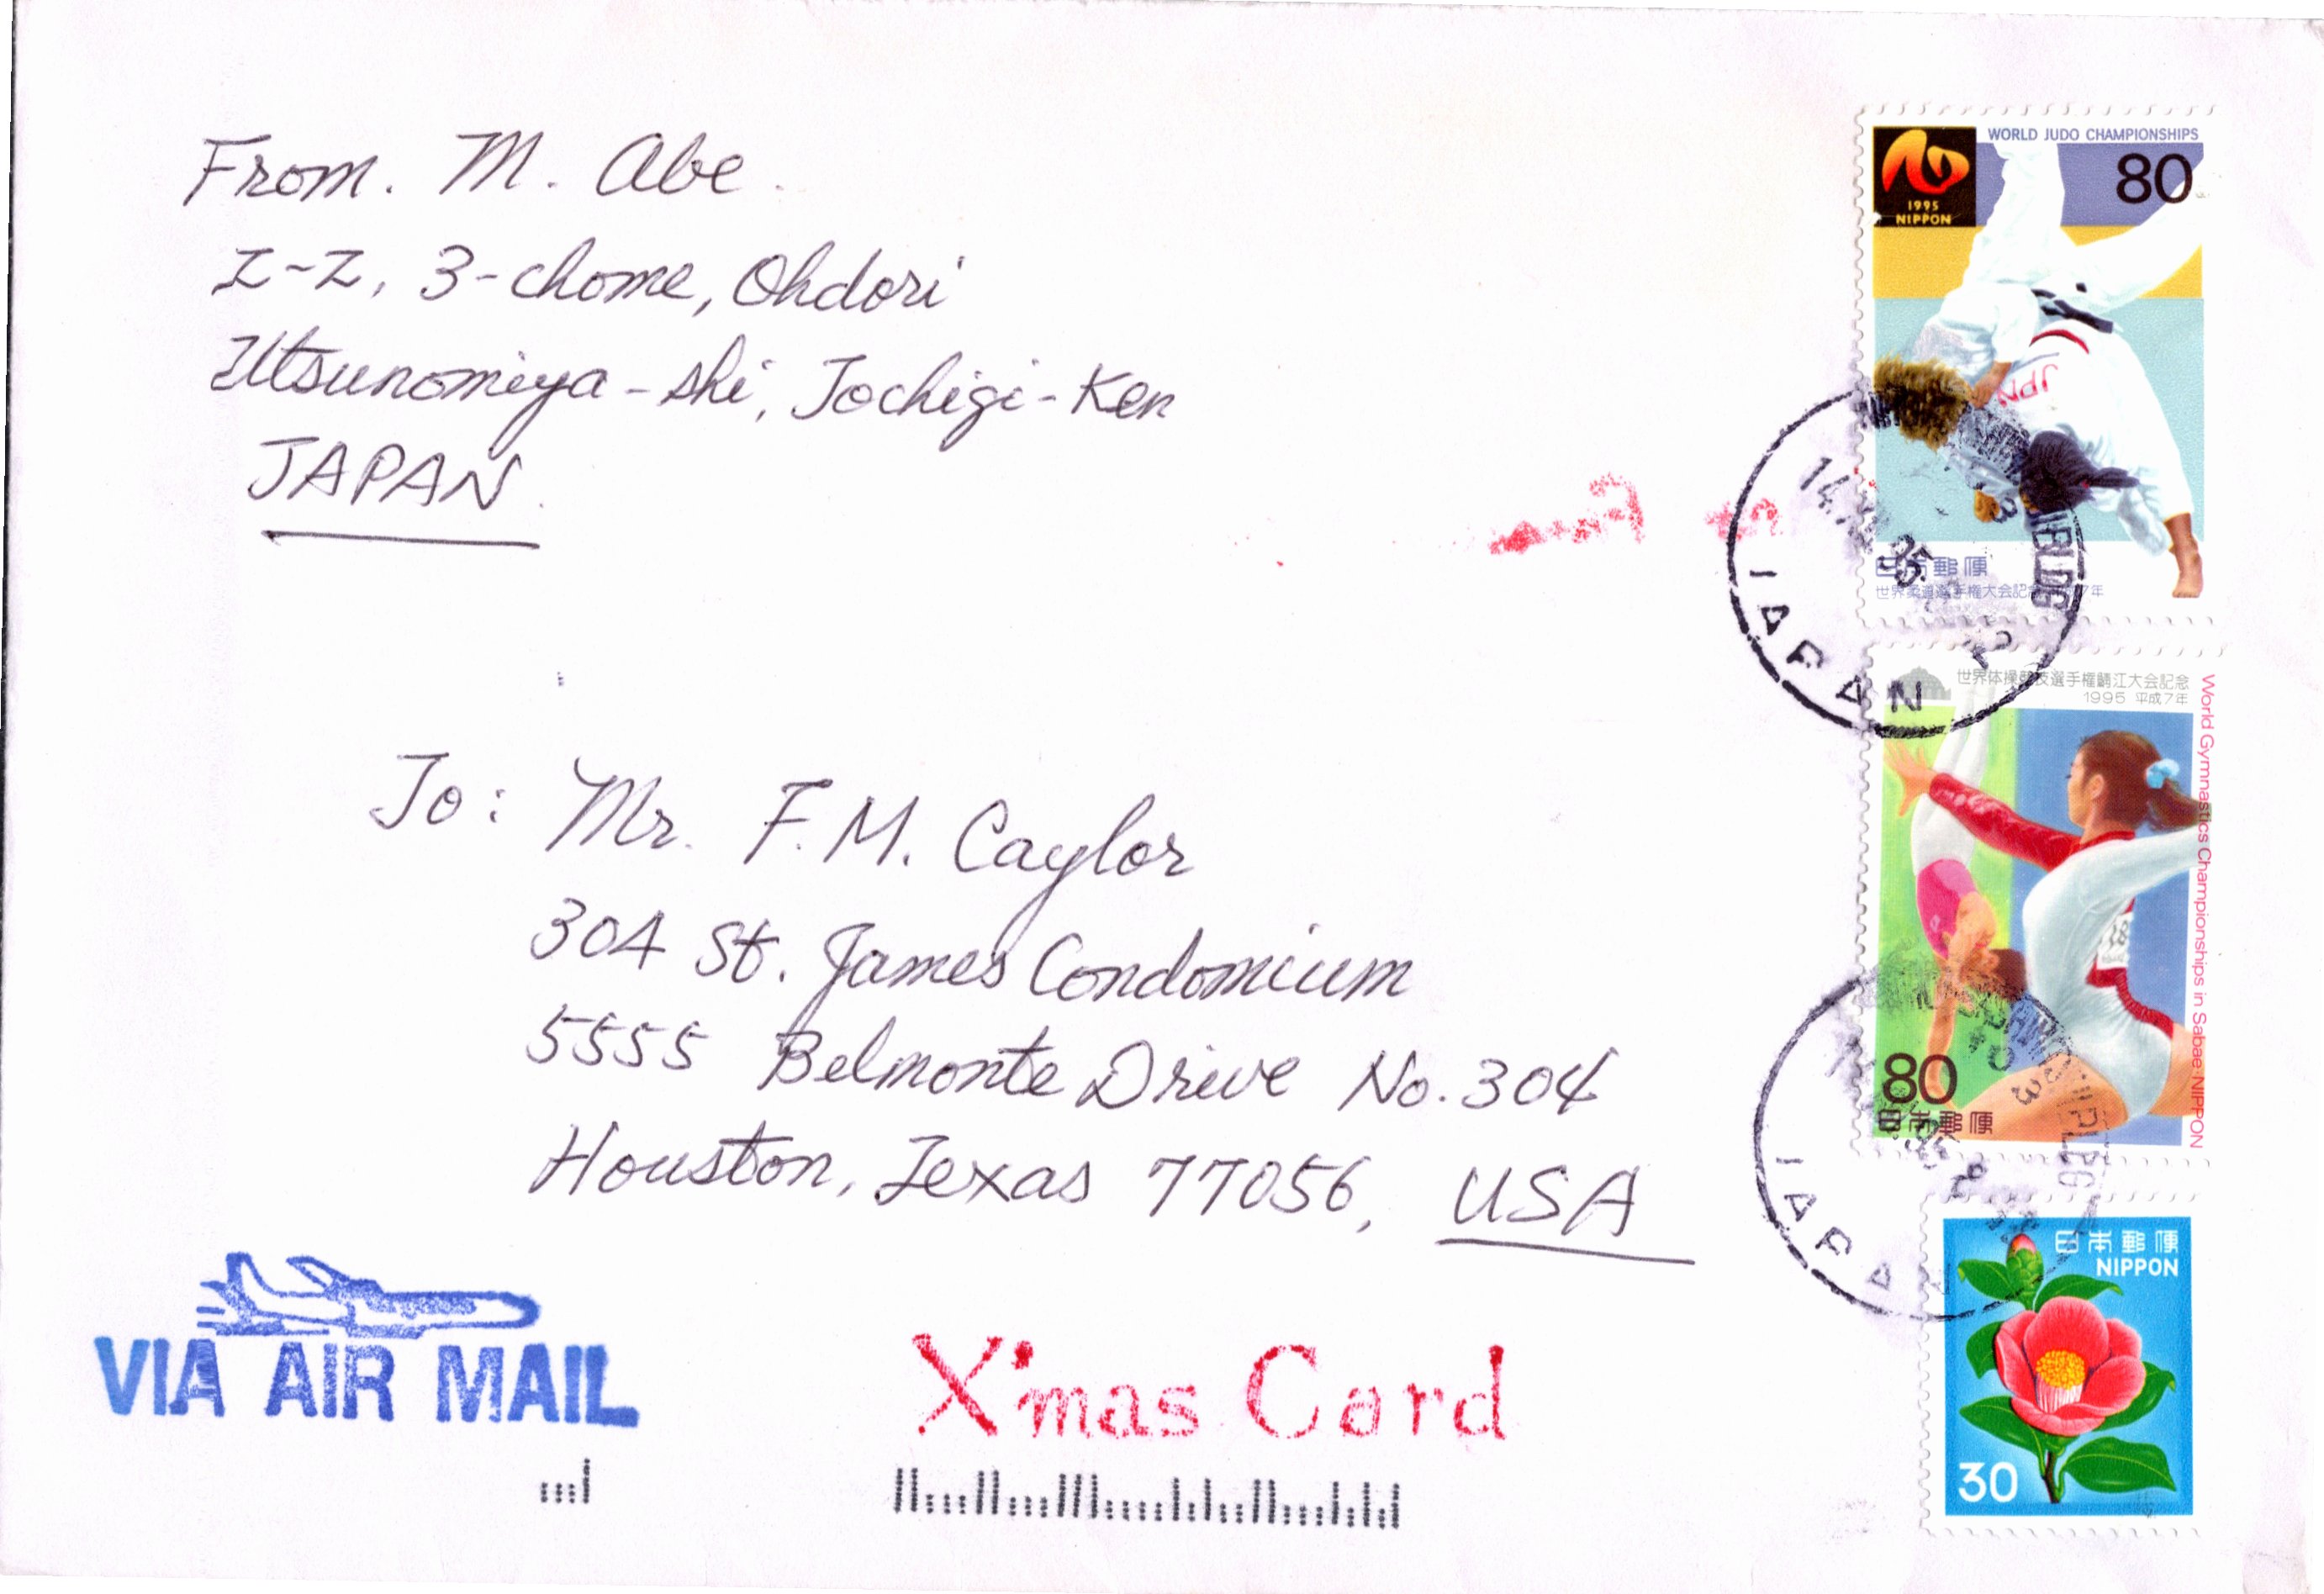 From. M. Abe.
2-2, 3-chome, Ohdori
Utsunomiya-shi, Tochigi-Ken
JAPAN.
To: Mr. F.M. Caylor
304 St. James Condomium
5555 Belmonte Drive No. 304
Houston, Texas 77056, USA
VIA AIR MAIL
X'mas Card
WORLD JUDO CHAMPIONSHIPS
80
1995
NIPPON
JPN
日本郵便
世界柔道選手権大会記念
7年
JAPAN
世界体操競技選手権鯖江大会記念
1995 平成7年
World Gymnastics Championships in Sabae NIPPON
80
日本郵便
日本郵便
NIPPON
30